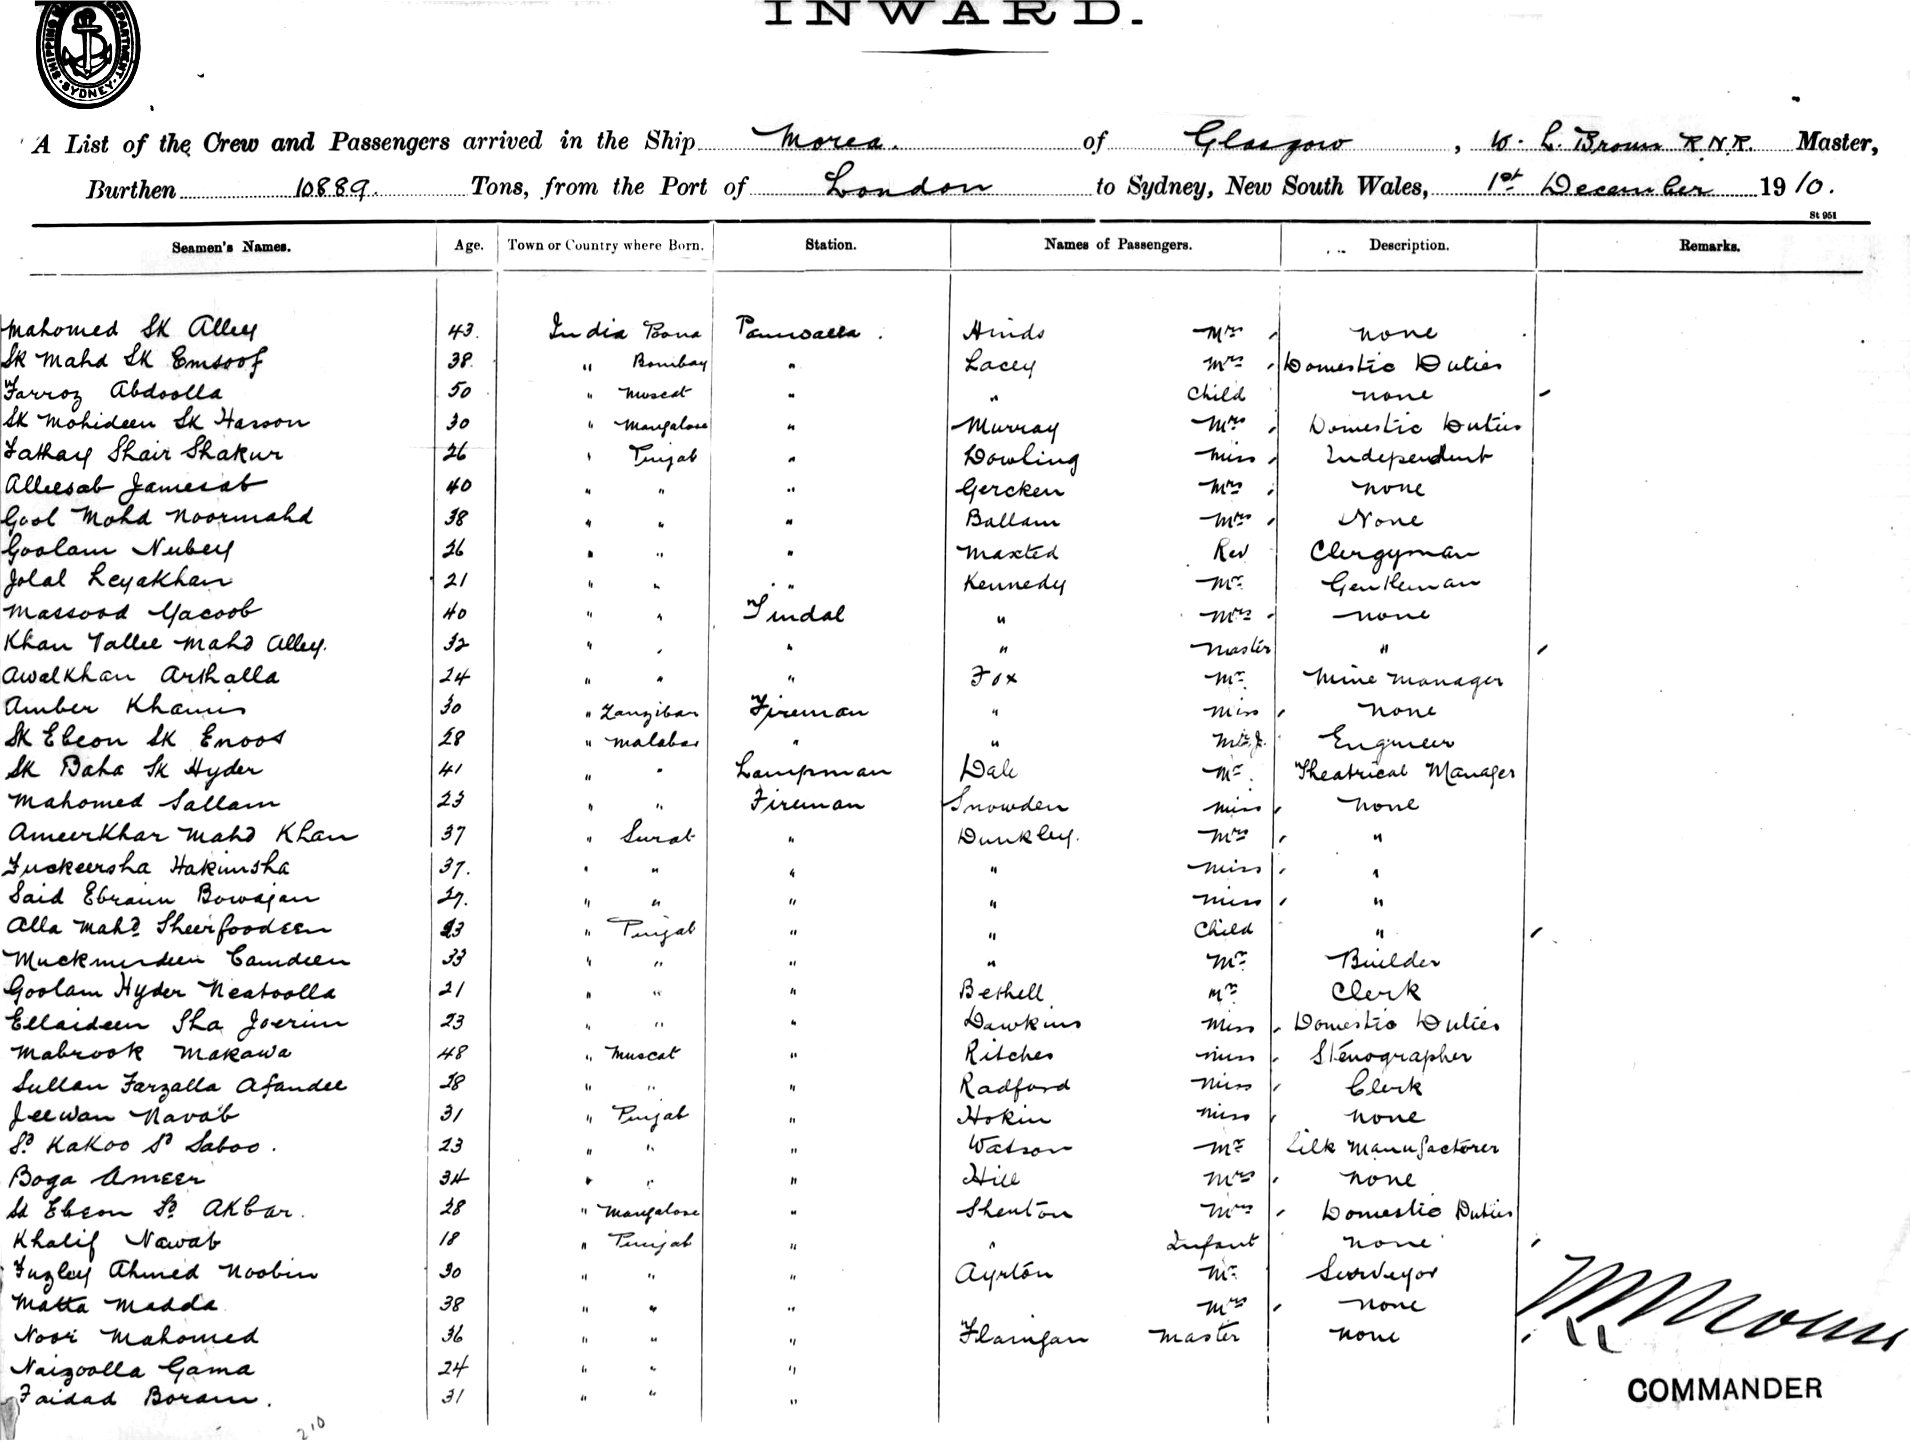 INWARD.
SHIPPING DEPARTMENT SYDNEY
A List of the Crew and Passengers arrived in the Ship Morea. of Glasgow, W. L. Brown R.N.R. Master,
Burthen 10889. Tons, from the Port of London to Sydney, New South Wales, 1st December 1910.
St 951
Seamen's Names. Age. Town or Country where Born. Station. Names of Passengers. Description. Remarks.
Mahomed Sk Alley 43. India Poona Paniwalla. Hinds Mrs none
Sk Mahd Sk Emsoof 38. " Bombay " Lacey Mrs Domestic Duties
Farroz Abdoolla 50 " Muscat " " Child none
Sk Mohideen Sk Hasson 30 " Mangalore " Murray Mrs Domestic Duties
Fathay Shair Shakur 26 " Punjab " Dowling Miss Independent
Alleesab Jamesab 40 " " " Gercken Mrs none
Gool Mohd Noormahd 38 " " " Ballam Mrs None
Goolam Nubey 26 " " " Maxted Rev Clergyman
Jolal Leyakhan 21 " " " Kennedy Mr Gentleman
Massood Yacoob 40 " " Tindal " Mrs none
Khan Vallee Mahd Alley. 32 " " " " Master "
Awalkhan Arthalla 24 " " " Fox Mr Mine Manager
Amber Khamis 30 " Zanzibar Fireman " Miss none
Sk Ebeon Sk Enoos 28 " Malabar " " Mr J. Engineer
Sk Baha Sk Hyder 41 " " Lampman Dale Mr Theatrical Manager
Mahomed Sallam 23 " " Fireman Snowden Miss none
Ameerkhar Mahd Khan 37 " Surat " Dunkley. Mrs "
Fuckeersha Hakimsha 37. " " " " Miss "
Said Ebraim Bowajan 27. " " " " Miss "
Alla Mahd Sheirfoodeen 23 " Punjab " " Child "
Muckmurdeen Camdeen 33 " " " " Mr Builder
Goolam Hyder Neatoolla 21 " " " Bethell Mr Clerk
Ellaideen Sha Joerim 23 " " " Dawkins Miss Domestic Duties
Mabrook Makawa 48 " Muscat " Ritches Miss Stenographer
Sultan Farzalla Afandee 28 " " " Radford Miss Clerk
Jeewan Navab 31 " Punjab " Hokin Miss none
Sd Kakoo Sd Saboo. 23 " " " Watson Mr Silk Manufacturer
Boga Ameer 34 " " " Hill Mrs none
Sd Ebeon Sd Akbar. 28 " Mangalore " Shenton Mrs Domestic Duties
Khalif Nawab 18 " Punjab " " Infant none
Fuzley Ahmed Noobin 30 " " " Ayrton Mr Surveyor
Matta Madda 38 " " " Mrs none
Noor Mahomed 36 " " " Flanigan Master none
Naizoolla Gama 24 " " "
Faidad Boram. 31 " " "
COMMANDER
210